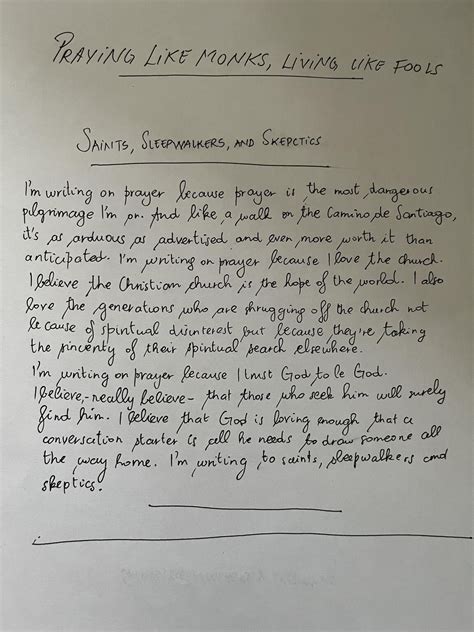 PRAYING LIKE MONKS, LIVING LIKE FOOLS
SAINTS, SLEEPWALKERS, AND SKEPCTICS
I'm writing on prayer because prayer is the most dangerous
pilgrimage I'm on. And like a walk on the Camino de Santiago,
it's as arduous as advertised and even more worth it than
anticipated. I'm writing on prayer because I love the church.
I believe the Christian church is the hope of the world. I also
love the generations who are shrugging off the church not
because of spiritual disinterest but because they're taking
the sincerity of their spiritual search elsewhere.
I'm writing on prayer because I trust God to be God.
I believe, -really believe - that those who seek him will surely
find him. I believe that God is loving enough that a
conversation starter is all he needs to draw someone all
the way home. I'm writing to saints, sleepwalkers and
skeptics.